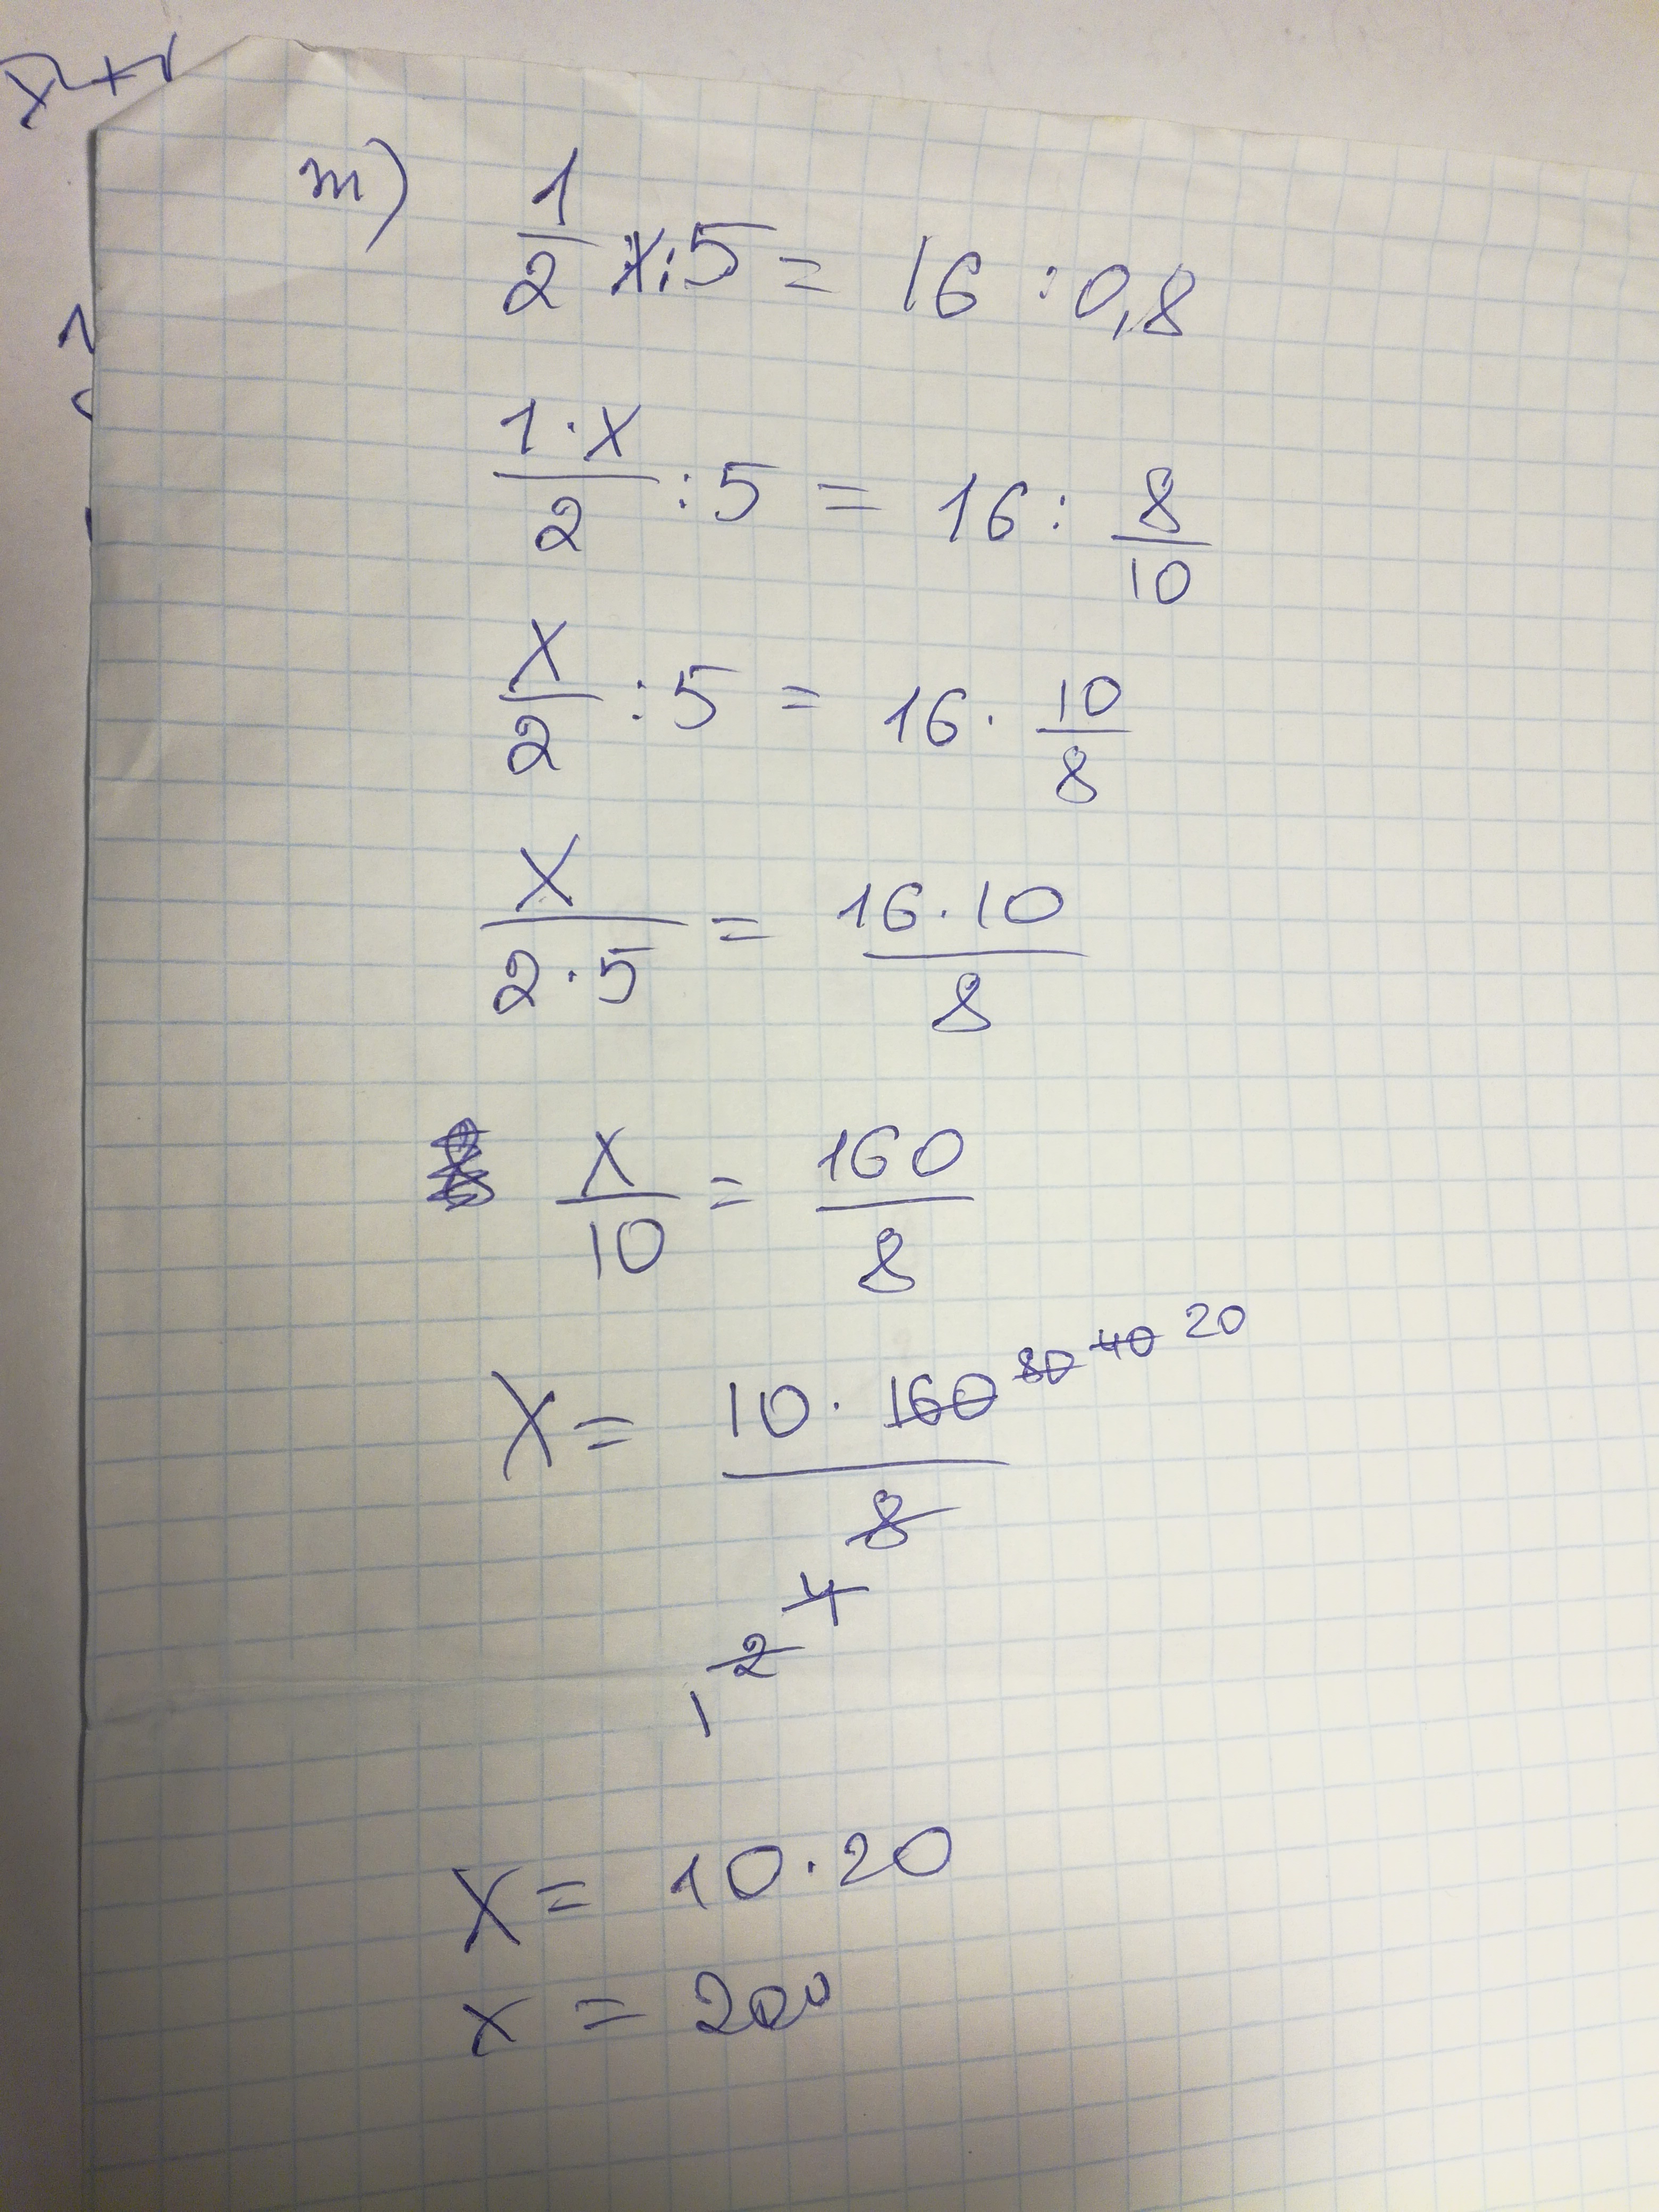 m) 1/2 x:5 = 16 : 0,8
1·x/2 : 5 = 16 : 8/10
x/2 : 5 = 16 · 10/8
x/2·5 = 16·10/8
x/10 = 160/8
x = 10·160/8 80 40 20
4
2
1
x = 10·20
x = 200